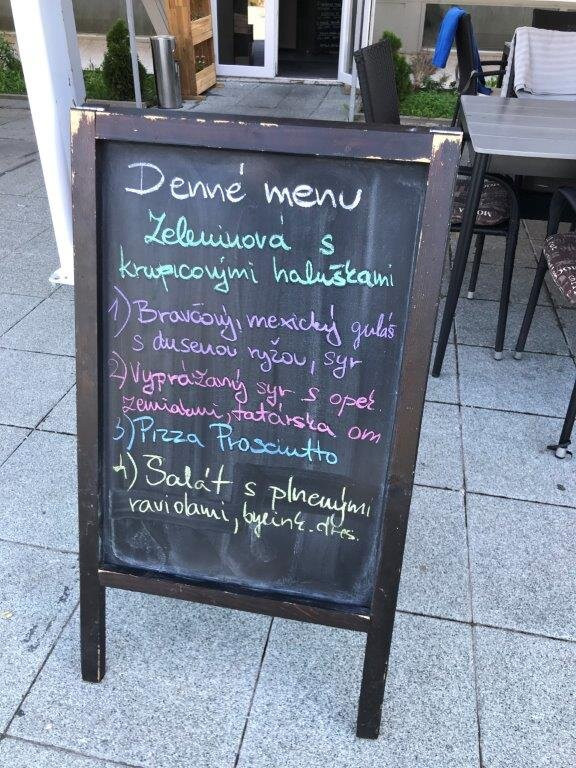 Denné menu
Zeleninová s
krupicovými haluškami
1) Bravčový, mexický guláš
s dusenou ryžou, syr
2) Vyprážaný syr s opek.
zemiakmi, tatárska om
3) Pizza Prosciutto
4) Šalát s plnenými
raviolami, bylink. dres.